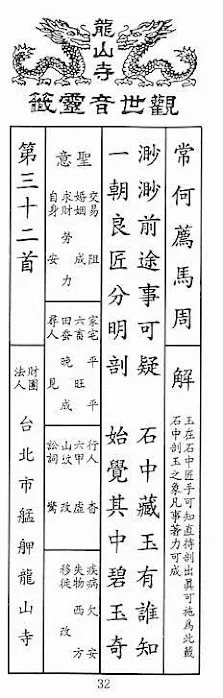 龍山寺
觀世音靈籤
常何薦馬周
解
玉在石中匠手可知直待剖出眞可施為此籤
石中剖玉之象凡事著力可成
渺渺前途事可疑 石中藏玉有誰知
一朝良匠分明剖 始覺其中碧玉奇
聖意
交易 阻
婚姻 成
求財 勞力
自身 安
家宅 平
六畜 旺
田蚕 晚成
尋人 見
行人 杳
六甲 虛
山坟 改
訟詞 驚
疾病 欠安
失物 西方
移徙 改
第三十二首
財團法人 台北市艋舺龍山寺
32